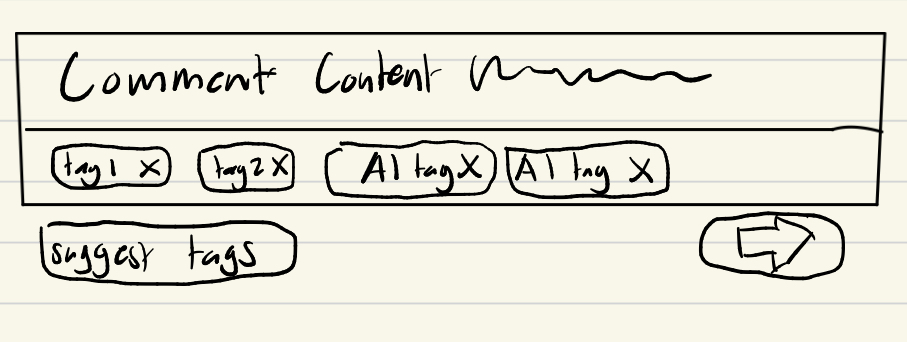 Comment Content
tag1 X tag2 X AI tag X AI tag X
suggest tags